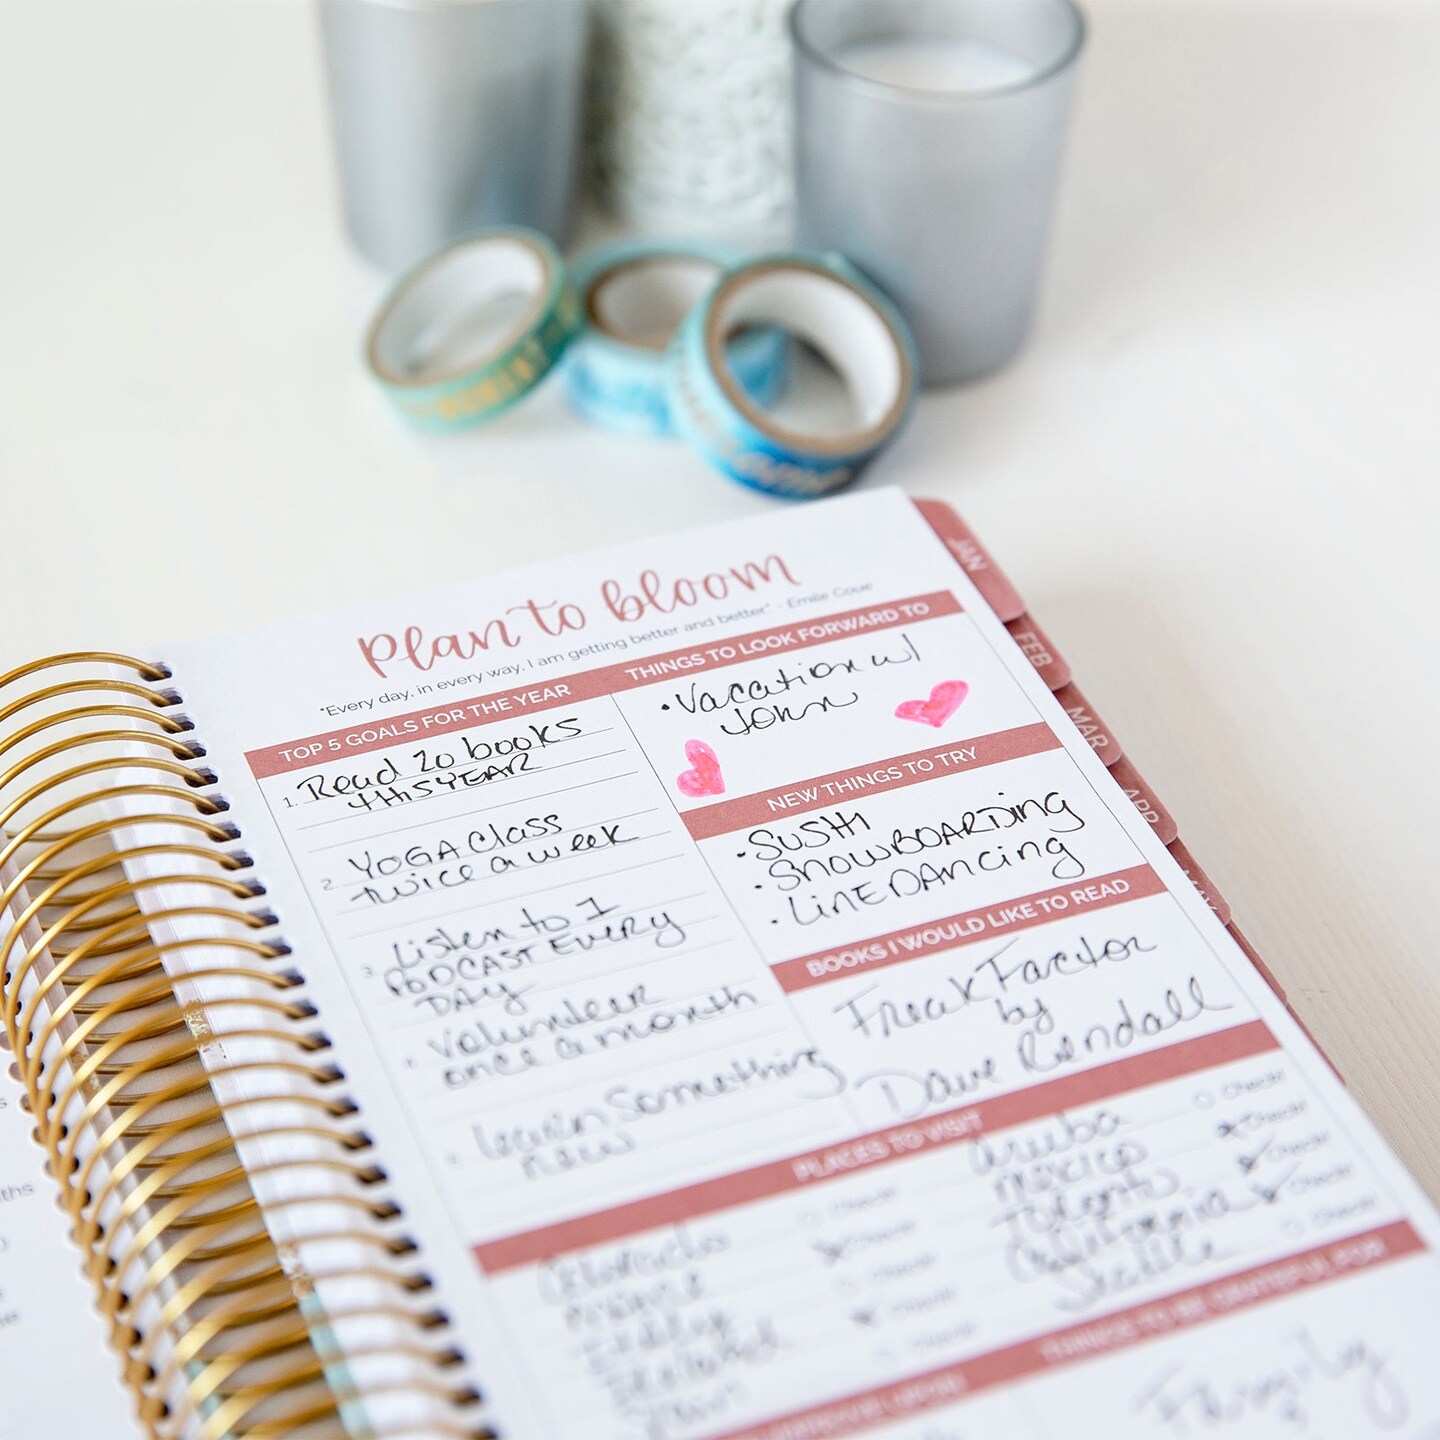 Plan to bloom
"Every day, in every way, I am getting better and better" - Emile Coue
TOP 5 GOALS FOR THE YEAR
1. Read 20 books
this YEAR
2. YOGA Class
twice a week
3. Listen to 1
PODCAST EVERY
DAY
Volunteer
once a month
learn Something
new
THINGS TO LOOK FORWARD TO
• Vacation w/
John
NEW THINGS TO TRY
• SUSHI
• SNOWBOARDing
• LINE DANCING
BOOKS I WOULD LIKE TO READ
Freak Factor
by
Dave Rendall
PLACES TO VISIT
Colorado
Check!
Check!
Check!
Check!
Check!
Aruba
Mexico
Toronto
California
Seattle
Check!
Check!
Check!
Check!
Check!
THINGS TO BE GRATEFUL FOR
Family
JAN
FEB
MAR
APR
MAY